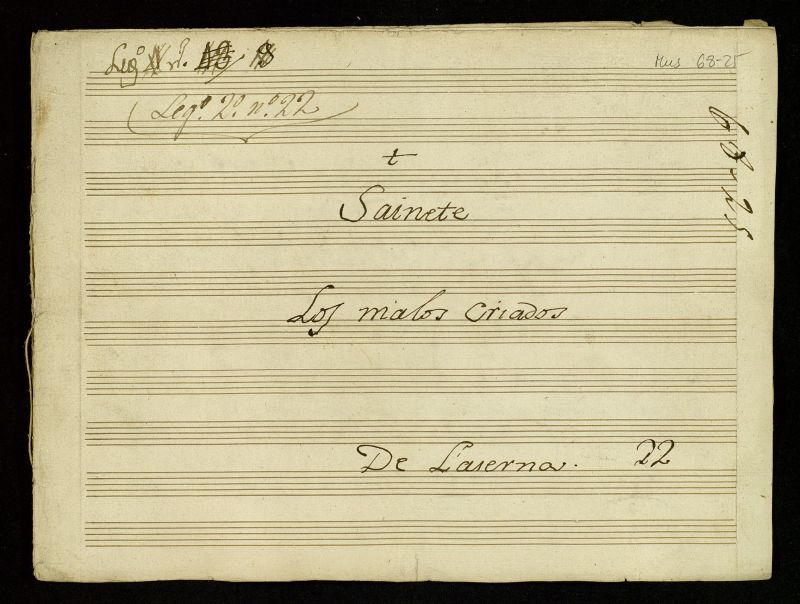 Leg.º 1 n.º 8
Mus 68-25
Leg.º 2.º n.º 22
68-25
Sainete
Los malos criados
De Laserna. 22